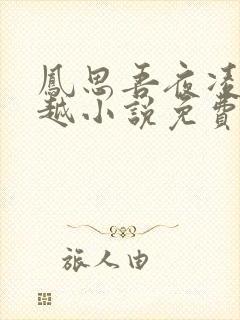 鳳思吾夜凌
越小說免費
旅人由